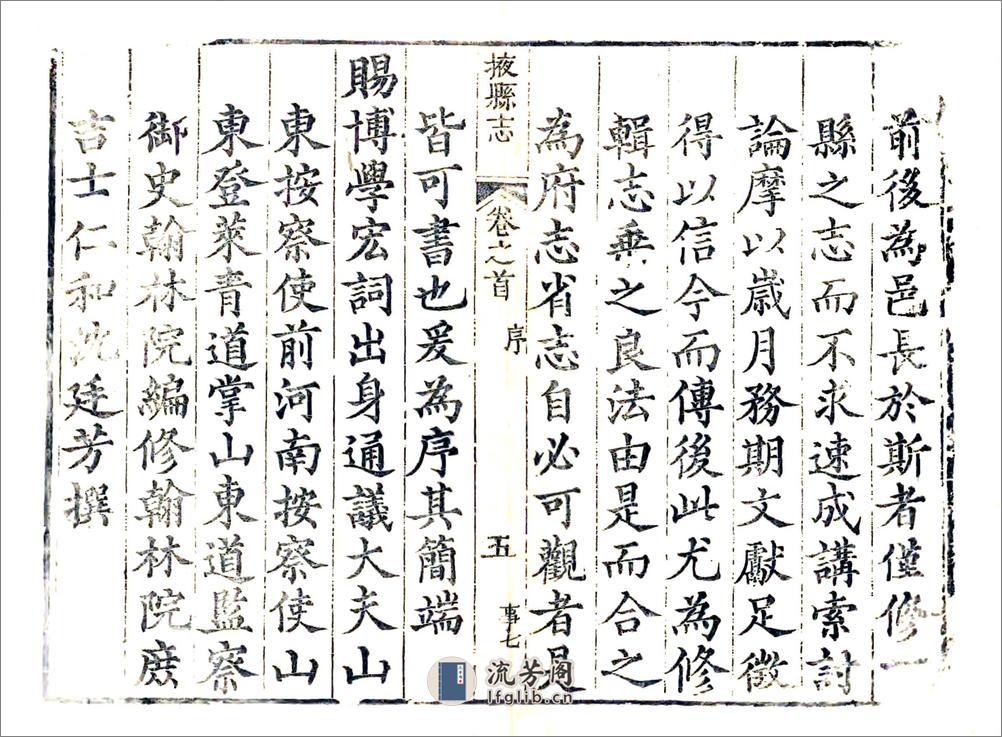 前後為邑長於斯者僅修一
縣之志而不求速成講索討
論摩以歲月務期文獻足徵
得以信今而傳後此尤為修
輯志乘之良法由是而合之
為府志省志自必可觀者是
掖縣志 卷之首 序 五 事七
皆可書也爰為序其簡端
賜博學宏詞出身通議大夫山
東按察使前河南按察使山
東登萊青道掌山東道監察
御史翰林院編修翰林院庶
吉士仁和沈廷芳撰
流芳阁
lfglib.cn